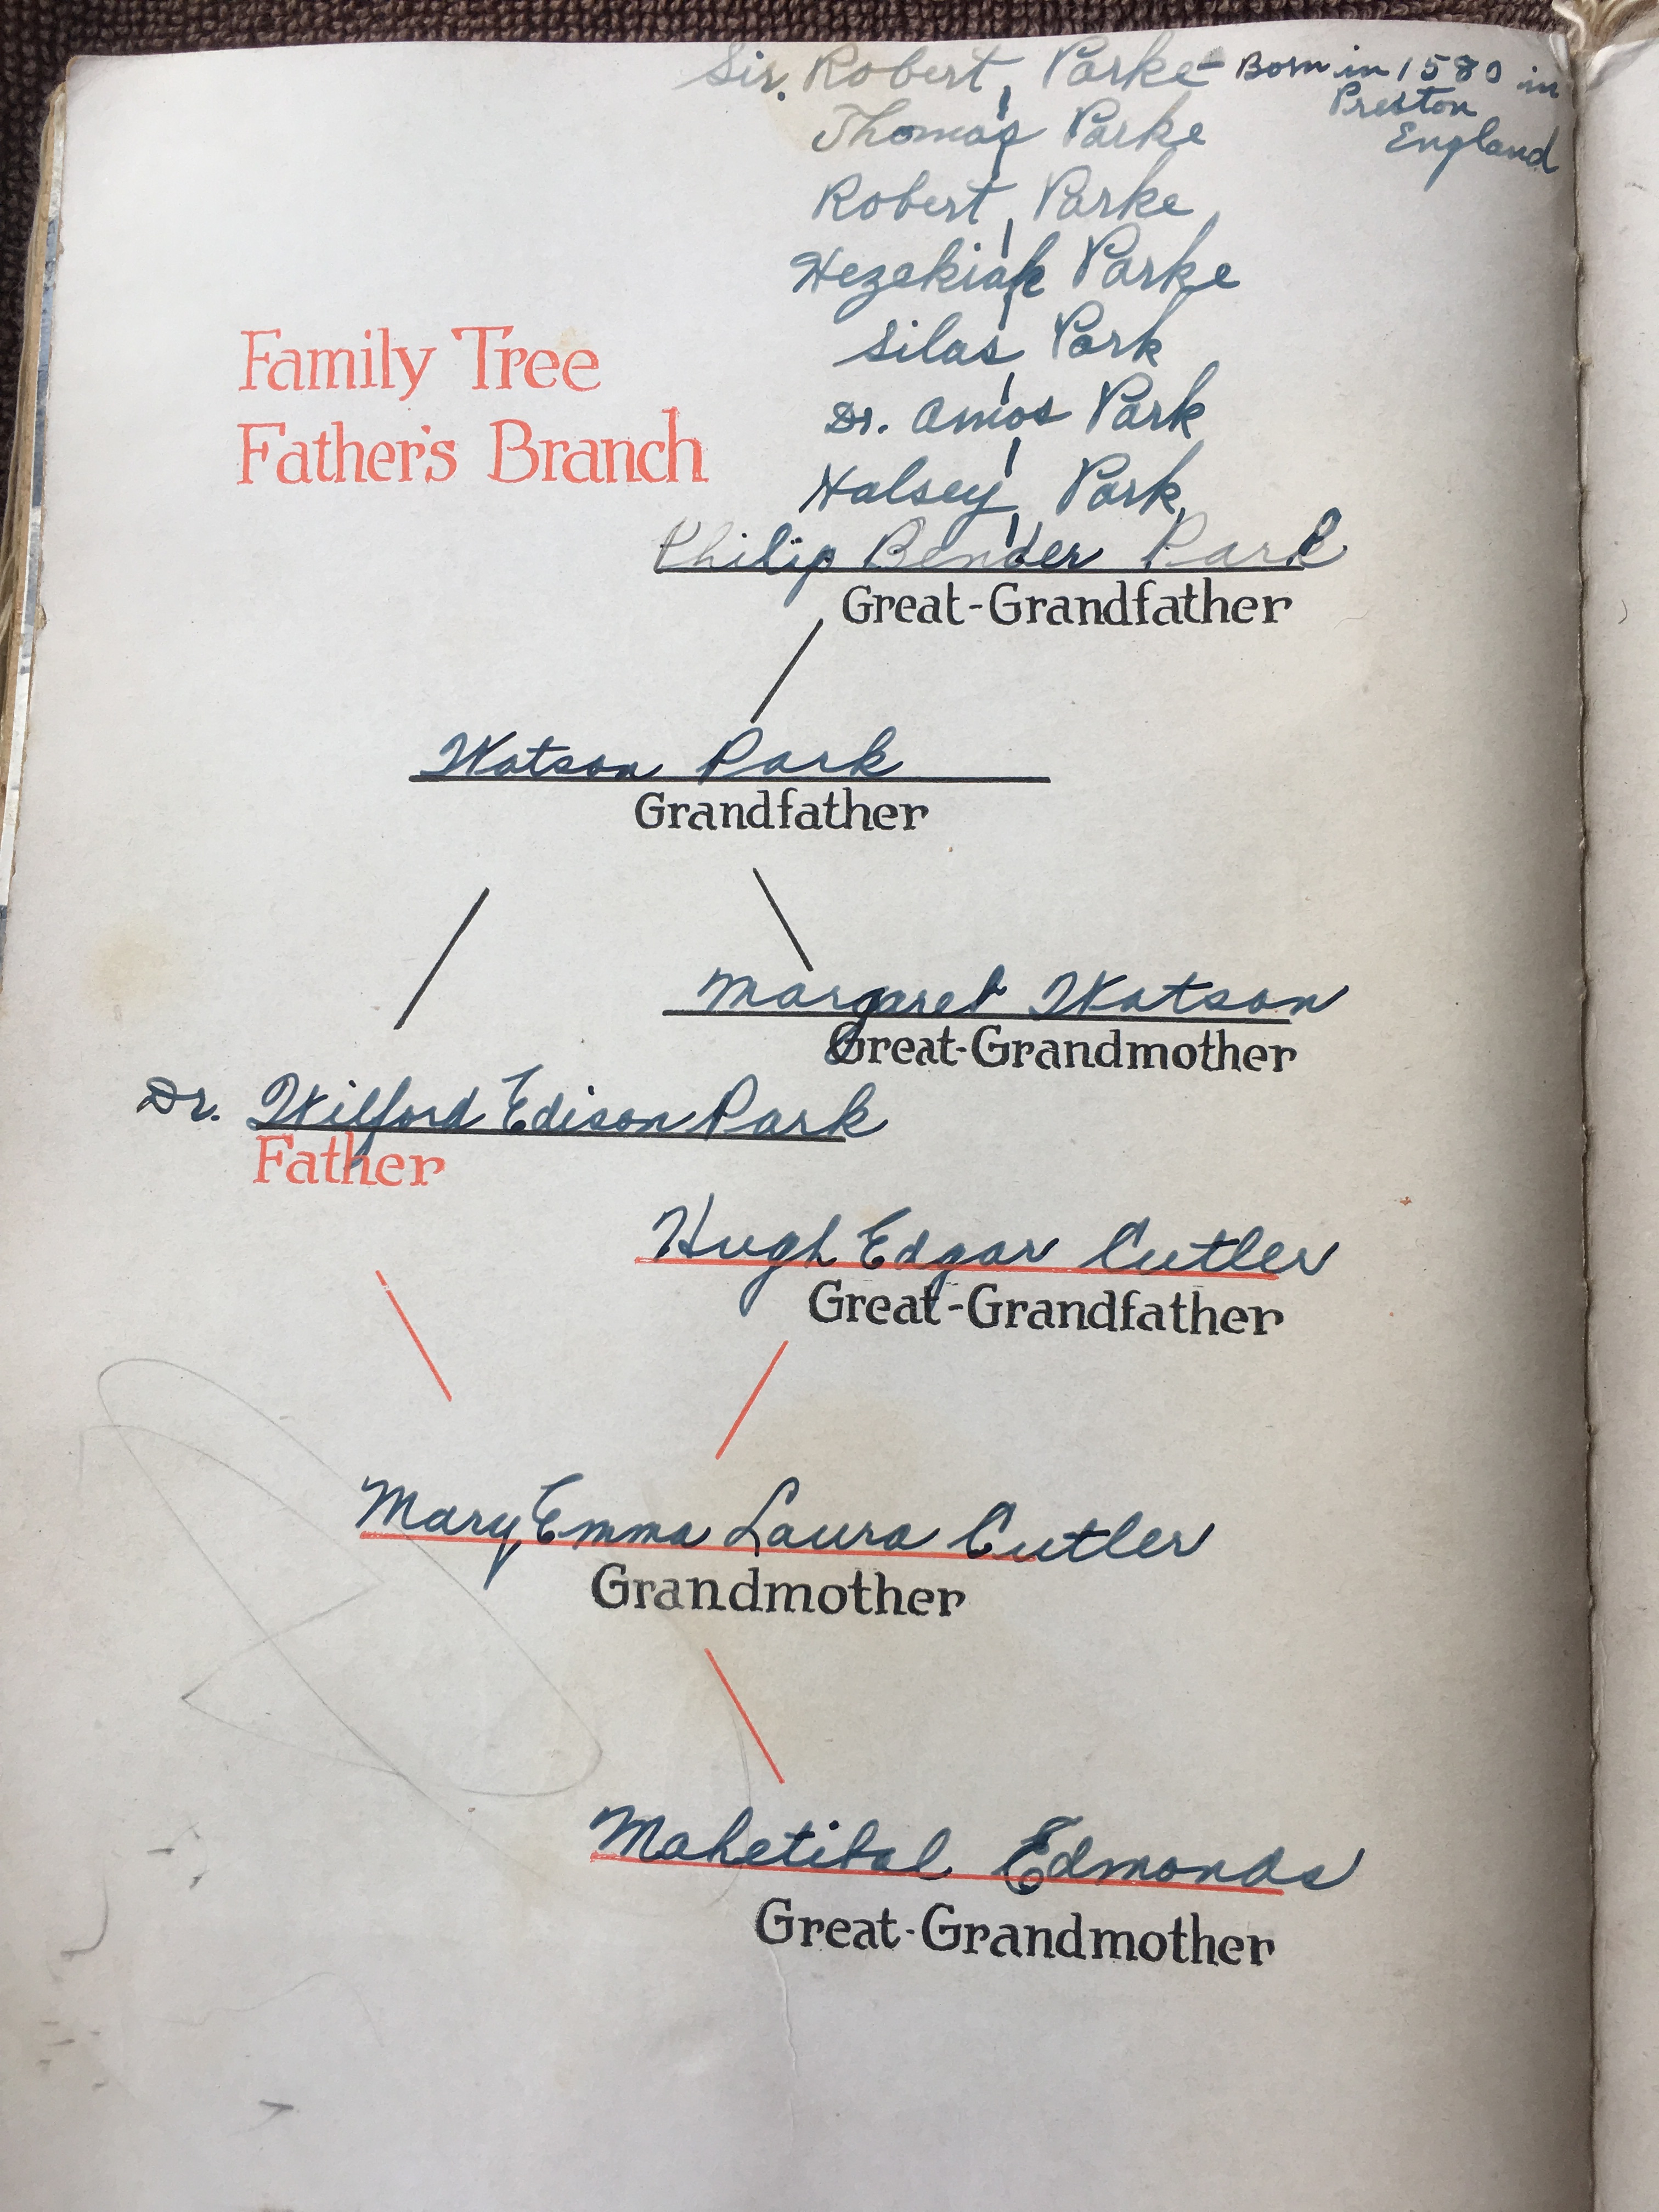 Sir. Robert Parke - Born in 1580 in
Preston
England
Thomas Parke
Robert Parke
Hezekiah Parke
Silas Park
Dr. Amos Park
Halsey Park
Family Tree
Father's Branch
Philip Bender Park
Great-Grandfather
Watson Park
Grandfather
Margaret Watson
Great-Grandmother
Dr. Wilford Edison Park
Father
Hugh Edgar Cutler
Great-Grandfather
Mary Emma Laura Cutler
Grandmother
Mahetibal Edmonds
Great-Grandmother